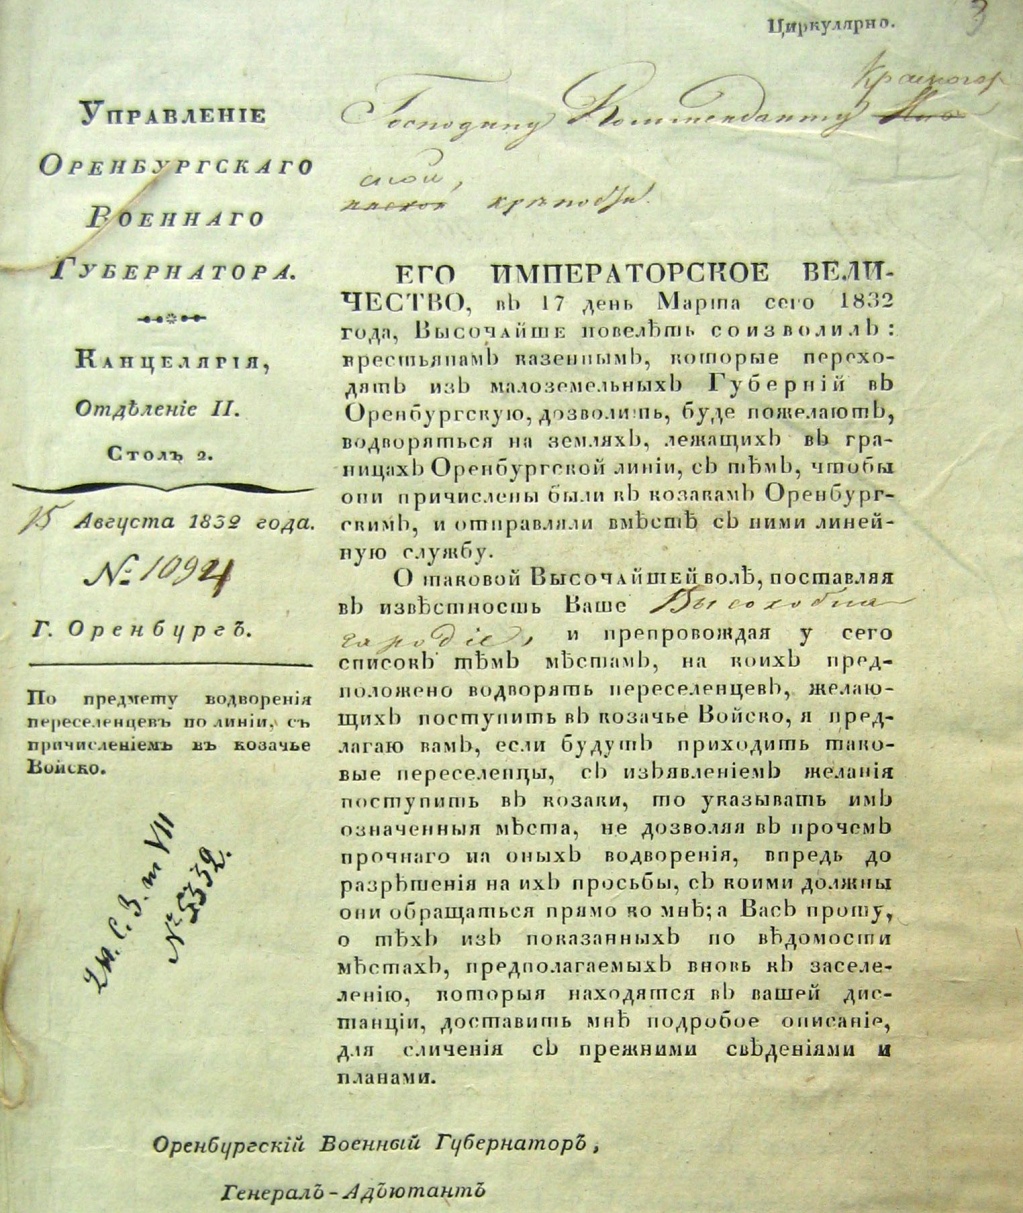 Циркулярно.
3
УПРАВЛЕНІЕ
ОРЕНБУРГСКАГО
ВОЕННАГО
ГУБЕРНАТОРА.
КАНЦЕЛЯРІЯ,
Отдѣленіе II.
СТОЛЪ 2.
15 Августа 1832 года.
№ 1094
Г. Оренбургъ.
По предмету водворенія
переселенцевъ по линіи, съ
причисленіемъ въ козачье
Войско.
2 п. С. З. т VII
№ 5332.
Красногор
Господину Комменданту
ской,
крѣпости.
ЕГО ИМПЕРАТОРСКОЕ ВЕЛИ-
ЧЕСТВО, въ 17 день Марта сего 1832
года, Высочайше повелѣть соизволилъ:
крестьянамъ казеннымъ, которые перехо-
дятъ изъ малоземельныхъ Губерній въ
Оренбургскую, дозволить, буде пожелаютъ,
водворяться на земляхъ, лежащихъ въ гра-
ницахъ Оренбургской линіи, съ тѣмъ, чтобы
они причислены были къ козакамъ Оренбург-
скимъ, и отправляли вмѣстѣ съ ними линей-
ную службу.
О таковой Высочайшей волѣ, поставляя
въ извѣстность Ваше Высокобла
городіе, и препровождая у сего
списокъ тѣмъ мѣстамъ, на коихъ пред-
положено водворять переселенцевъ, желаю-
щихъ поступить въ козачье Войско, я пред-
лагаю вамъ, если будутъ приходить тако-
вые переселенцы, съ изъявленіемъ желанія
поступить въ козаки, то указывать имъ
означенныя мѣста, не дозволяя въ прочемъ
прочнаго на оныхъ водворенія, впредь до
разрѣшенія на ихъ просьбы, съ коими должны
они обращаться прямо ко мнѣ; а Васъ прошу,
о тѣхъ изъ показанныхъ по вѣдомости
мѣстахъ, предполагаемыхъ вновь къ заселе-
ленію, которыя находятся въ вашей дис-
танціи, доставить мнѣ подробое описаніе,
для сличенія съ прежними свѣденіями и
планами.
Оренбургскій Военный Губернаторъ,
Генералъ-Адъютантъ